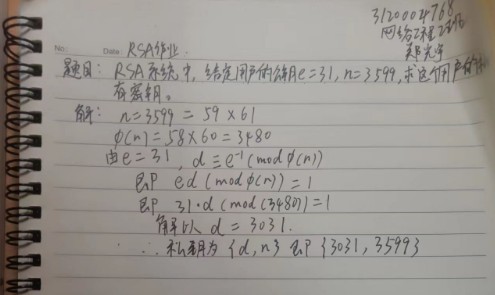 3120004768
网络工程2班
郑光宇
No:
Date: RSA作业.
题目: RSA系统中, 给定用户的公钥e=31, n=3599, 求这个用户的私
有密钥。
解: n=3599 = 59×61
φ(n)=58×60=3480
由e=31, d≡e⁻¹(modφ(n))
即 ed(modφ(n))=1
即 31·d(mod(3480))=1
解以 d=3031.
∴ 私钥为{d,n}即{3031,3599}